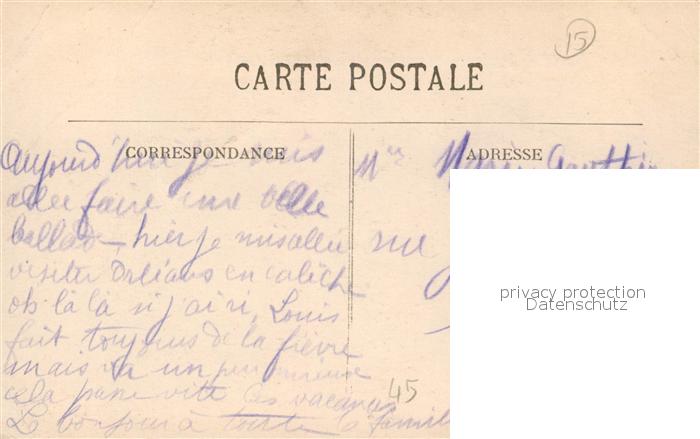 15
CARTE POSTALE
CORRESPONDANCE
ADRESSE
Aujourd'hui je suis
allée faire une belle
ballad hier je suis allée
visiter Orléans en calèche
oh là là si j'ai ri, Louis
fait toujours de la fièvre
mais va un peu mieux
cela passe vite ces vacances
Le bonjour à toute la famille
Mme
rue
privacy protection
Datenschutz
45